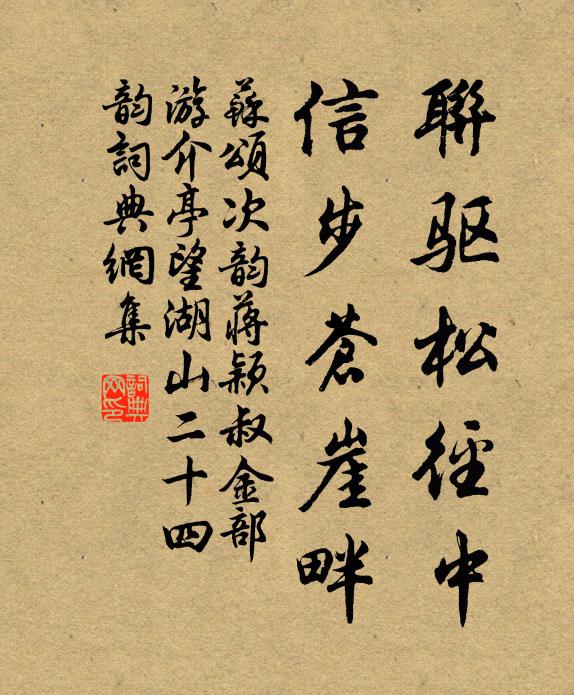 聯驱松徑中
信步蒼崖畔
蘇頌次韵蔣颖叔金部
游介亭望湖山二十四
韵詞典網集
詞典
网印